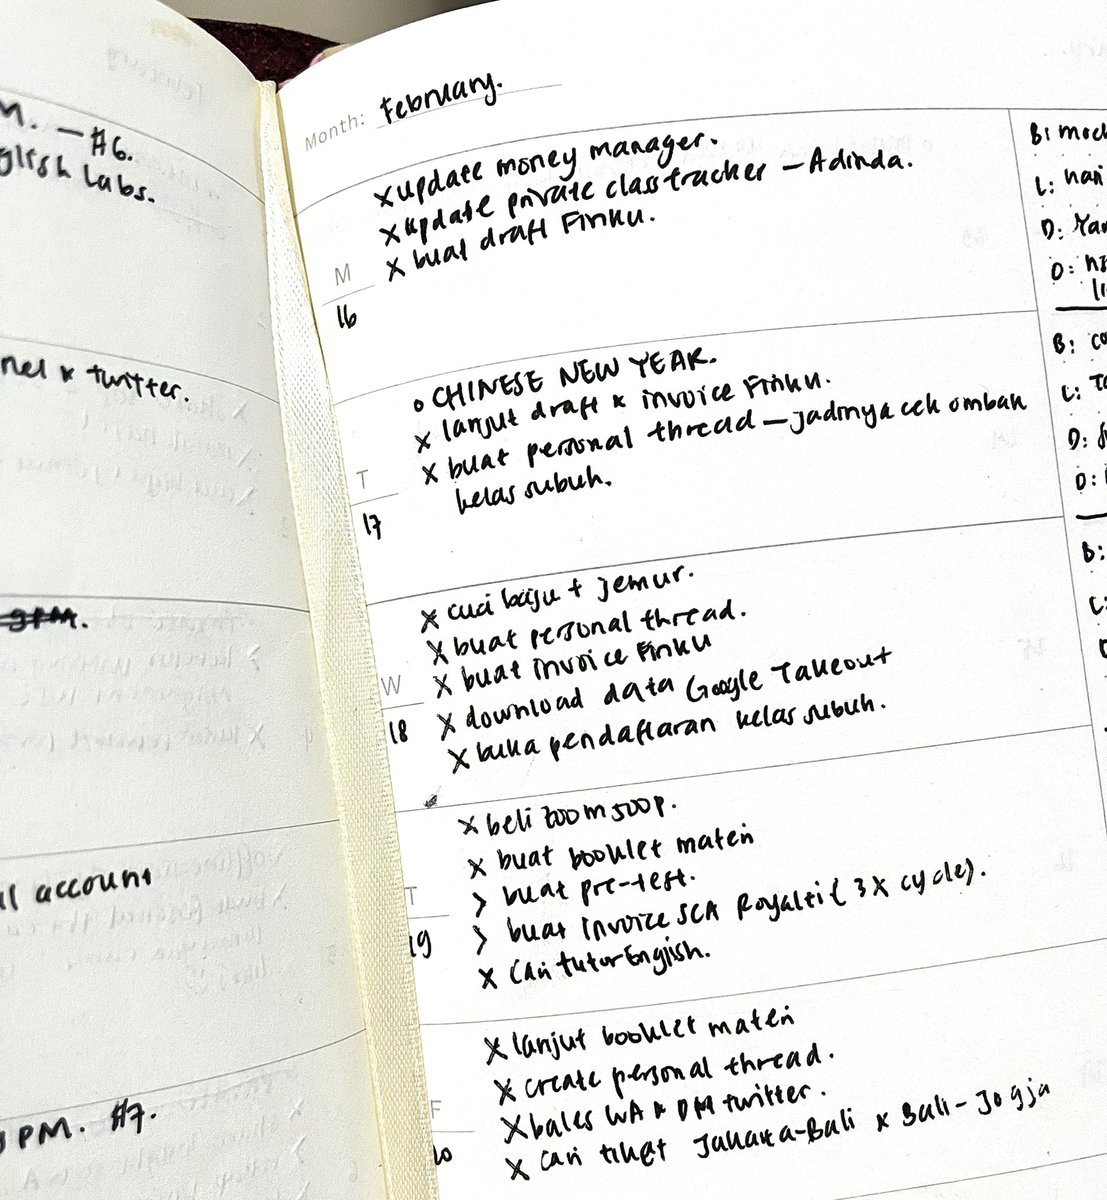 M. — #6.
glish Labs.
nel x twitter.
3PM.
account
PM. #7.
Month: February.
x update money manager.
x update private class tracker — Adinda.
x buat draft Finku.
M
16
o CHINESE NEW YEAR.
x lanjut draft x invoice Finku.
x buat personal thread — jadinya cek ombak
kelas subuh.
T
17
x cuci baju + jemur.
x buat personal thread.
x buat invoice Finku
x download data Google Takeout
x buka pendaftaran kelas subuh.
W
18
x beli zoom 500p.
x buat booklet materi
> buat pre-test.
> buat invoice SCA Royalti (3x cycle).
x cari tutor English.
T
19
x lanjut booklet materi
x create personal thread.
x bales WA x DM twitter.
x cari tiket Jakarta-Bali x Bali-Jogja
F
20
B:
L: nari
D:
D:
B:
L:
D:
D:
B:
L: